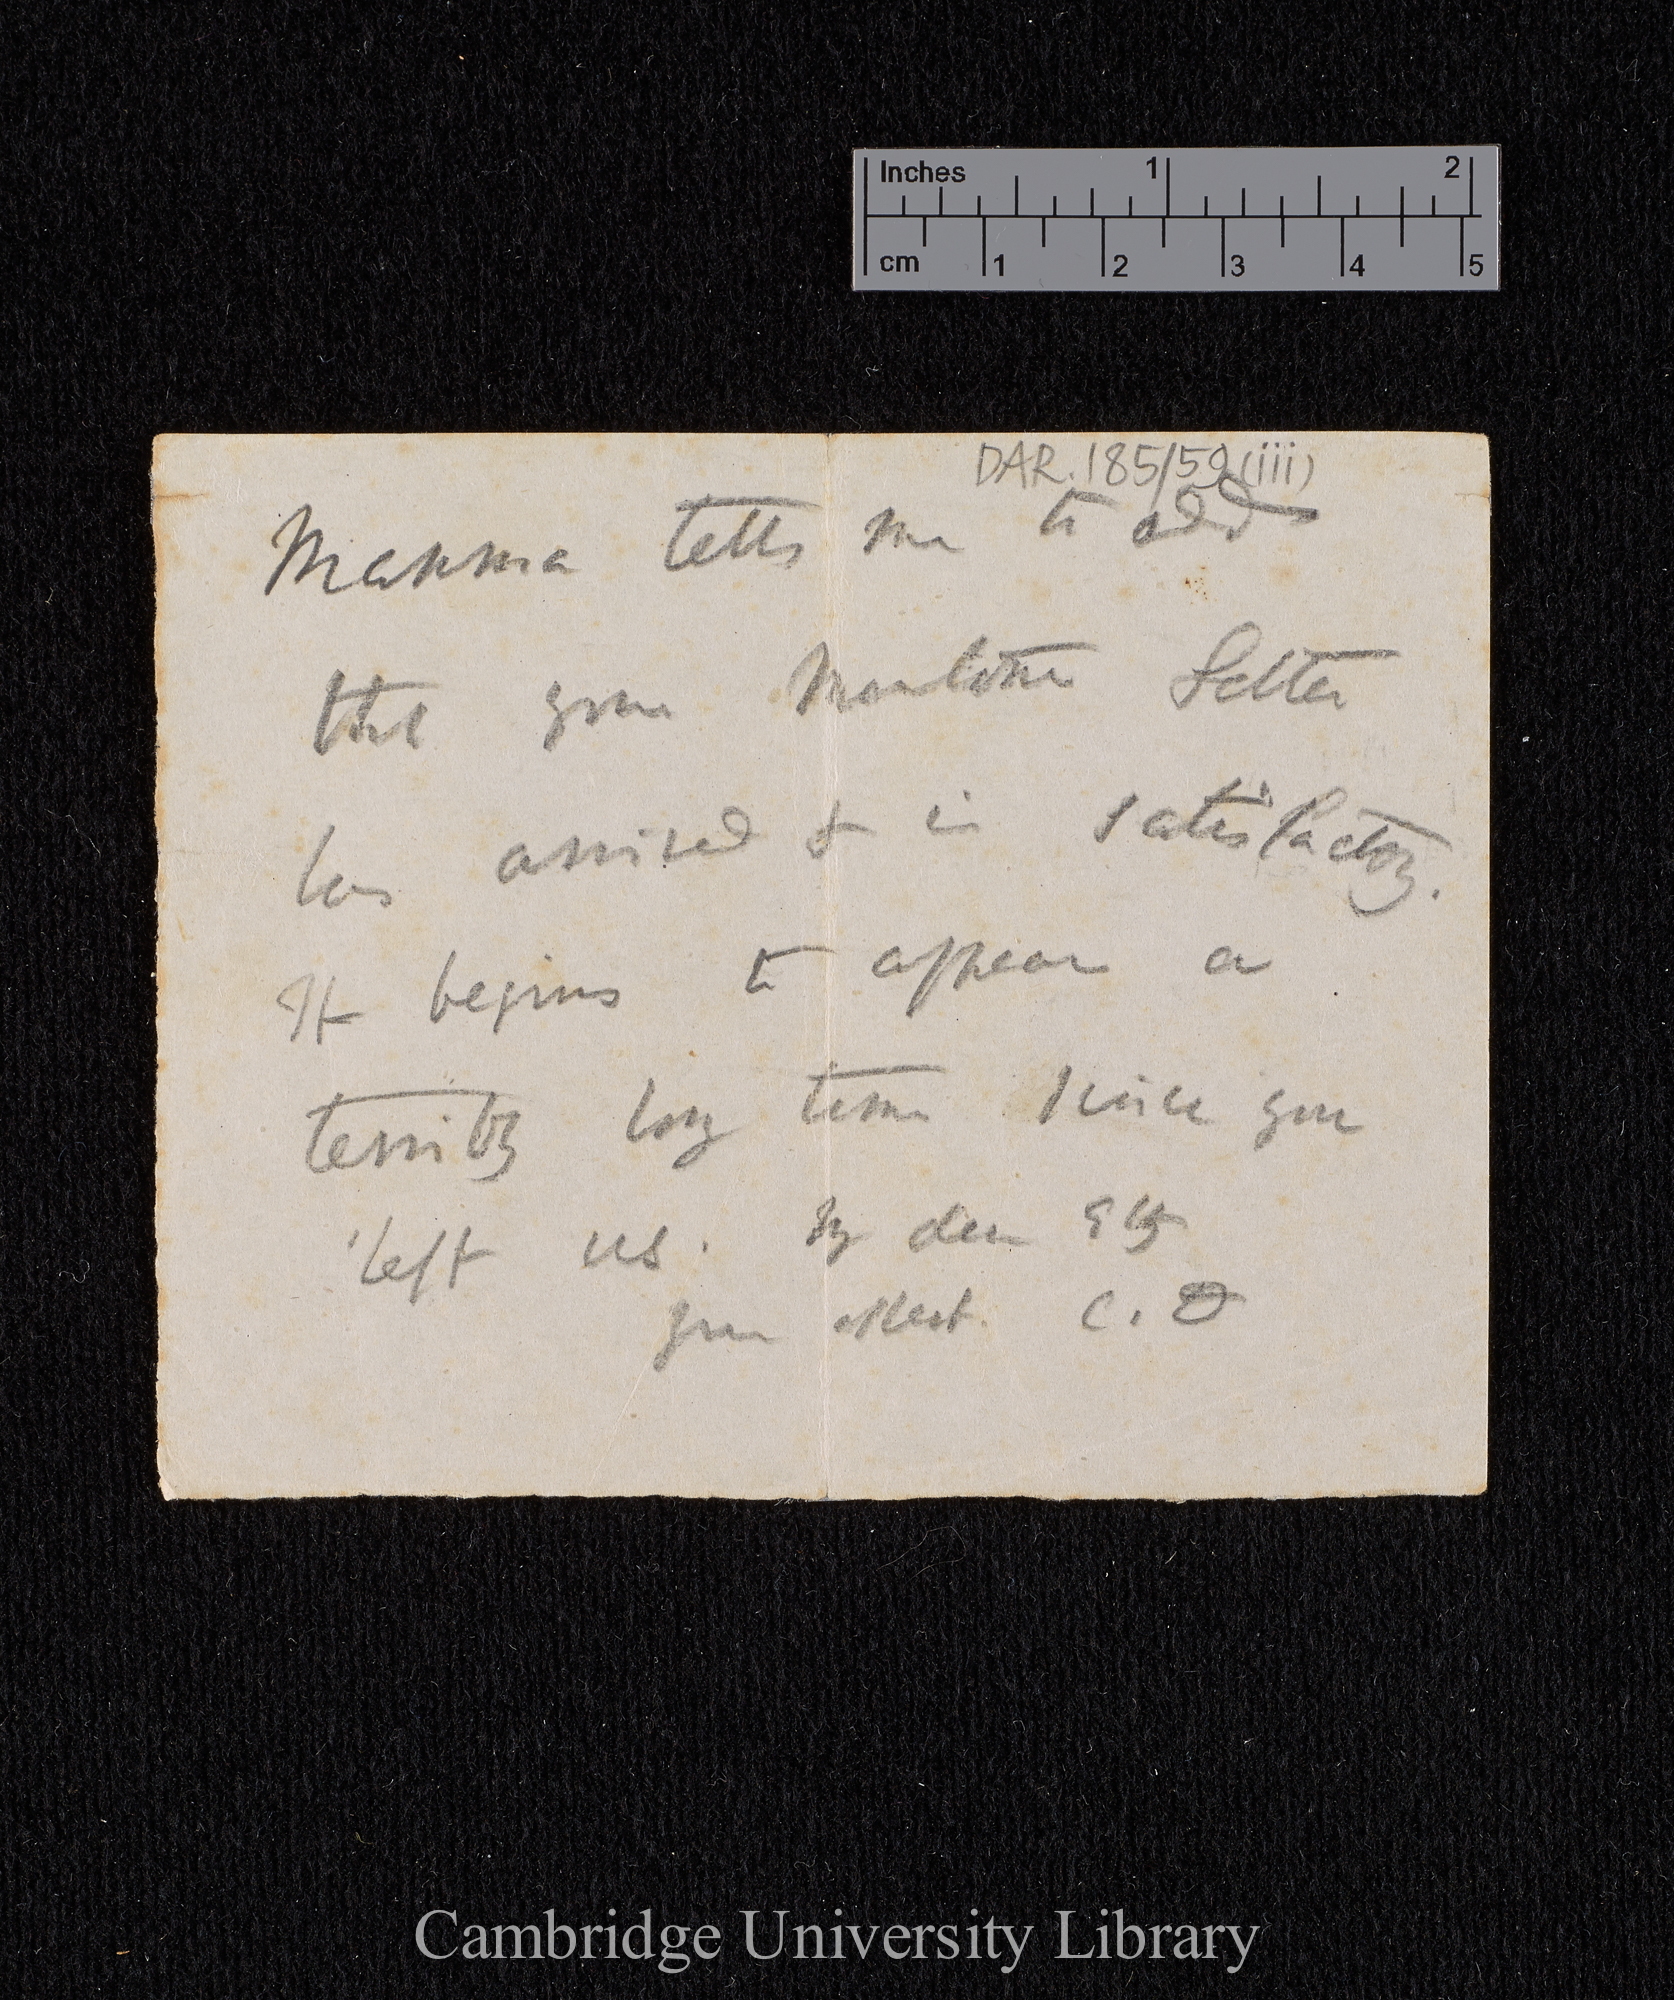 Inches 1 2
cm 1 2 3 4 5
DAR.185/59(iii)
Mamma tells me to add
that your Mentone Letter
has arrived & is satisfactory.
It begins to appear a
terribly long time since you
left us. My dear Etty
your affect. C. D
Cambridge University Library